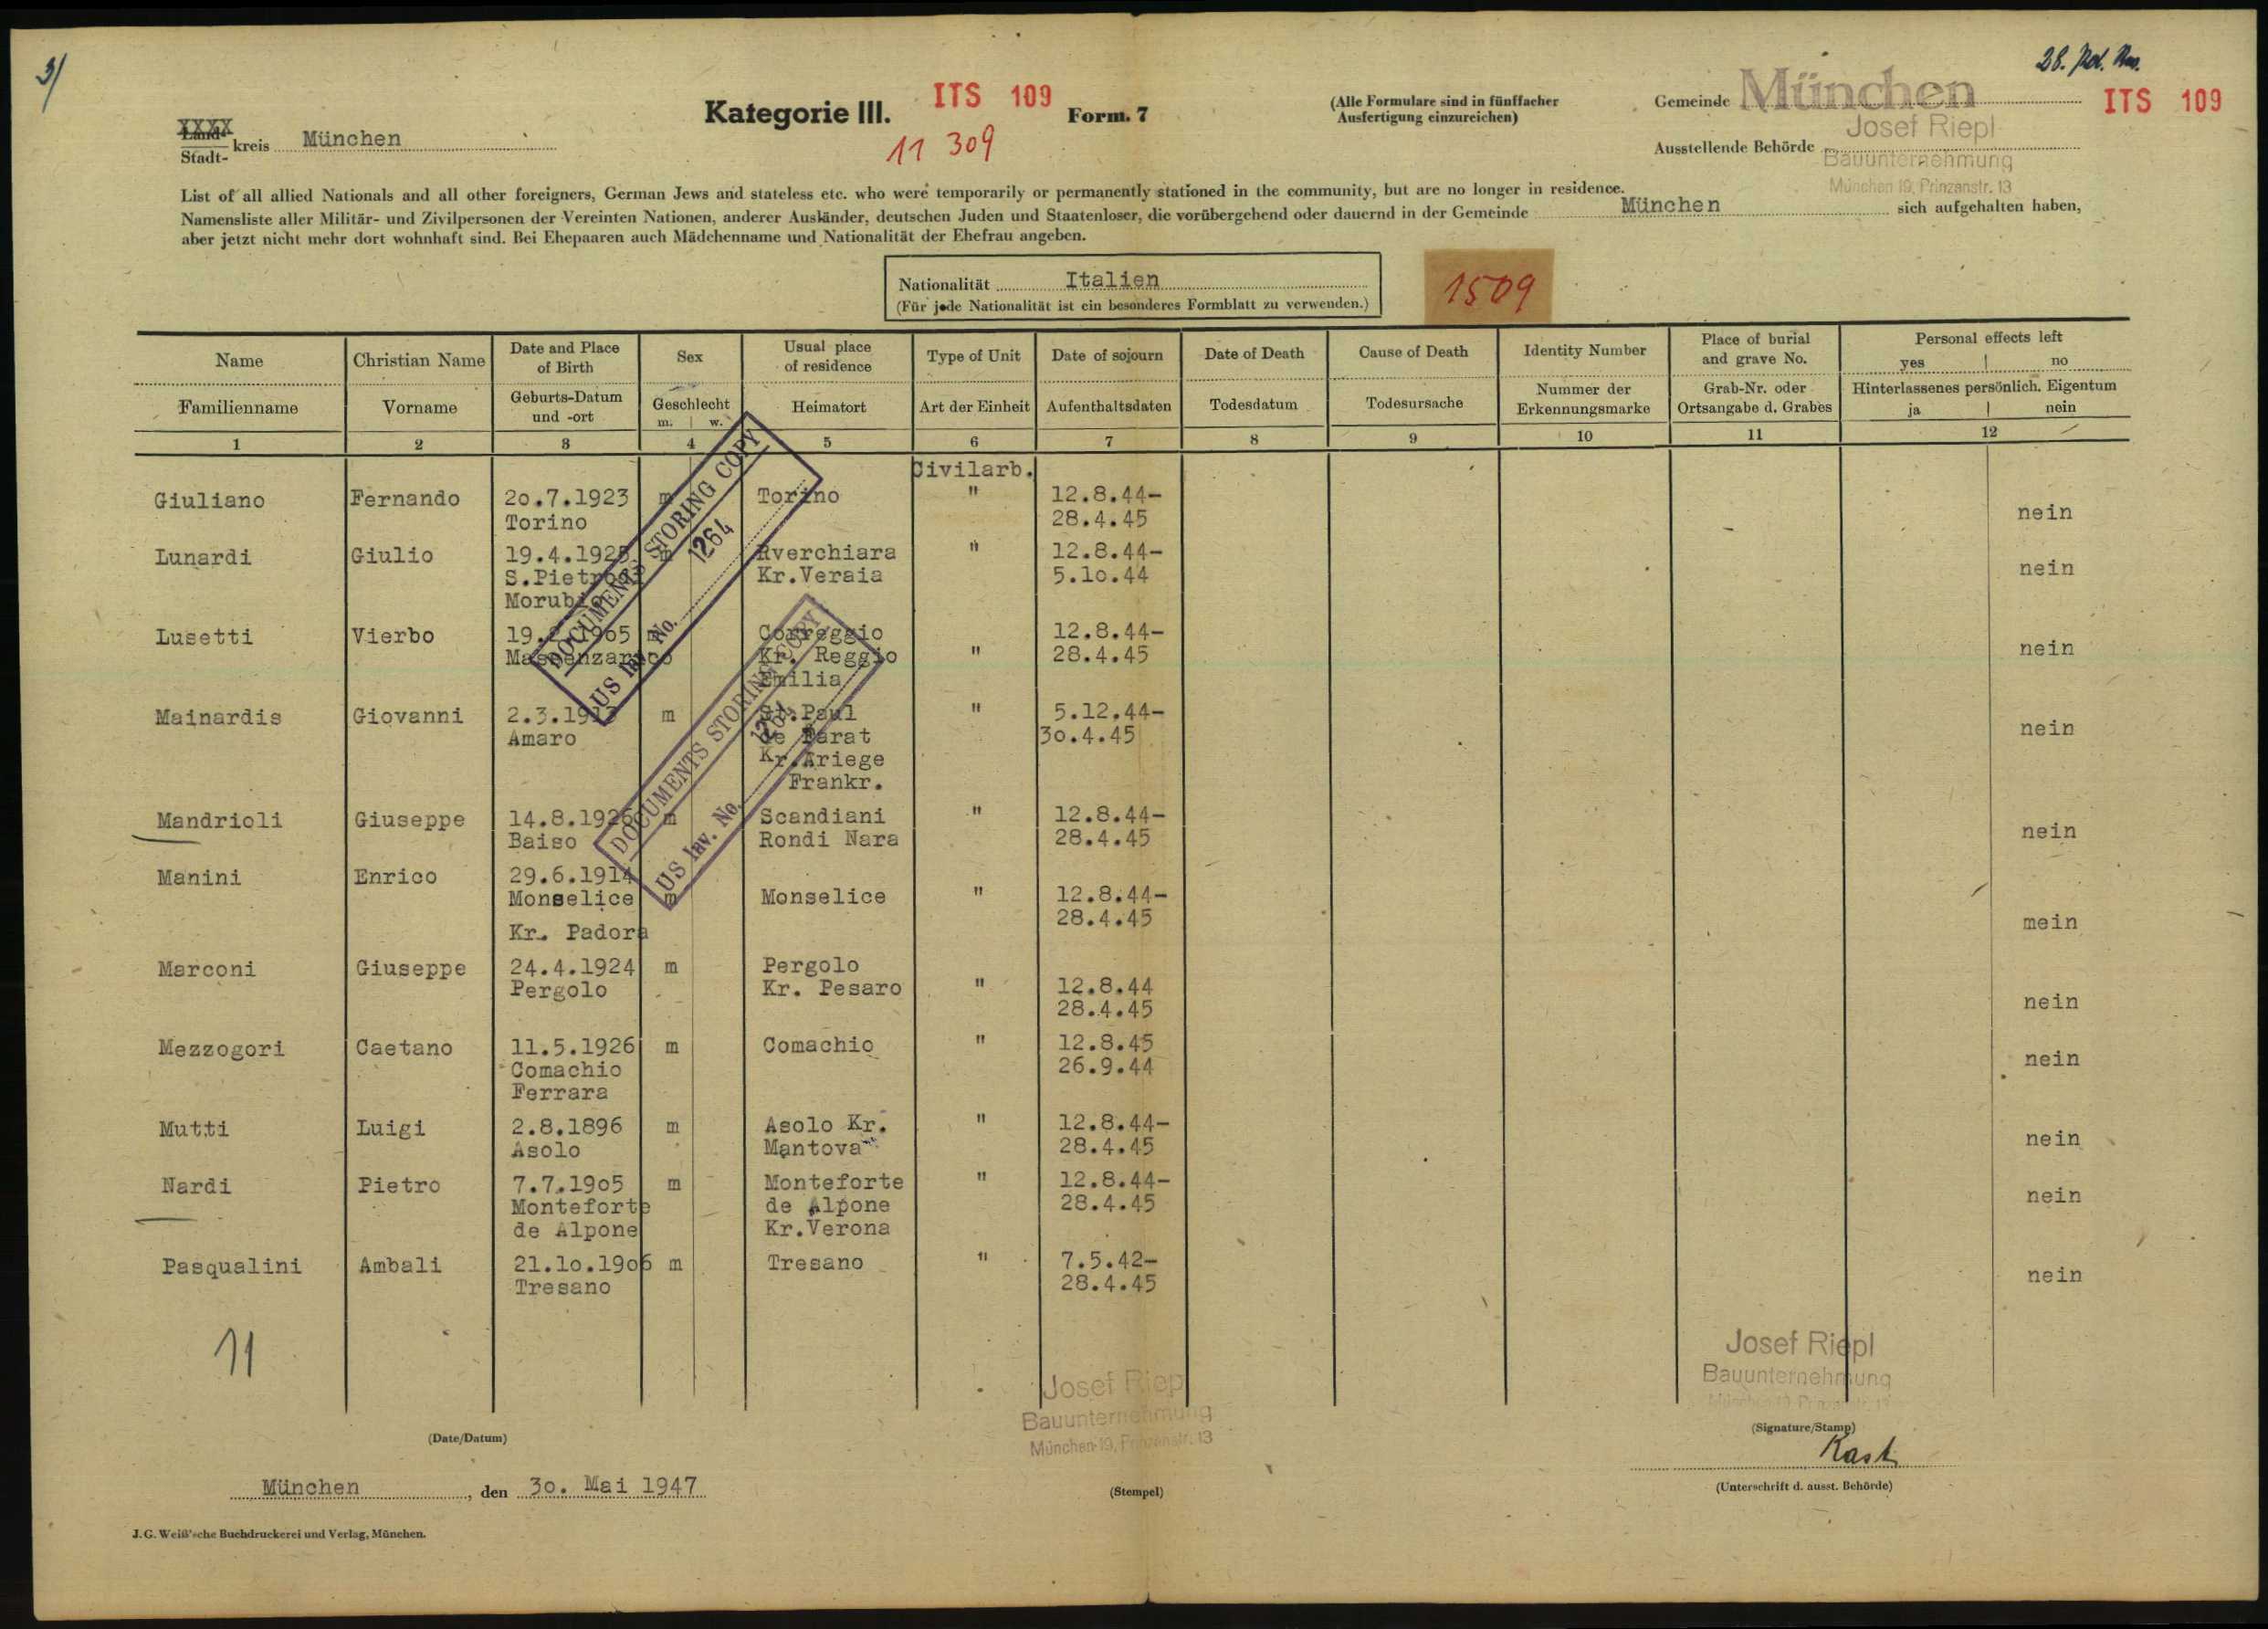 3/
28. Pol. Rev.
Kategorie III.
ITS 109
Form. 7
11 309
(Alle Formulare sind in fünffacher
Ausfertigung einzureichen)
Gemeinde München
ITS 109
Josef Riepl
Ausstellende Behörde
Bauunternehmung
München 19, Prinzenstr. 13
XXXX
Land-
Stadt- kreis München
List of all allied Nationals and all other foreigners, German Jews and stateless etc. who were temporarily or permanently stationed in the community, but are no longer in residence.
Namensliste aller Militär- und Zivilpersonen der Vereinten Nationen, anderer Ausländer, deutschen Juden und Staatenloser, die vorübergehend oder dauernd in der Gemeinde München sich aufgehalten haben,
aber jetzt nicht mehr dort wohnhaft sind. Bei Ehepaaren auch Mädchenname und Nationalität der Ehefrau angeben.
Nationalität Italien
(Für jede Nationalität ist ein besonderes Formblatt zu verwenden.)
1509
Name Christian Name Date and Place of Birth Sex Usual place of residence Type of Unit Date of sojourn Date of Death Cause of Death Identity Number Place of burial and grave No. Personal effects left yes no
Familienname Vorname Geburts-Datum und -ort Geschlecht m. w. Heimatort Art der Einheit Aufenthaltsdaten Todesdatum Todesursache Nummer der Erkennungsmarke Grab-Nr. oder Ortsangabe d. Grabes Hinterlassenes persönlich. Eigentum ja nein
1 2 3 4 5 6 7 8 9 10 11 12
Civilarb.
Giuliano Fernando 20.7.1923 m Torino " 12.8.44-
Torino 28.4.45 nein
Lunardi Giulio 19.4.1925 m Rverchiara " 12.8.44-
S.Pietrodi Kr.Veraia 5.10.44 nein
Morubio
Lusetti Vierbo 19. .1905 m Correggio 12.8.44-
Kr. Reggio " 28.4.45 nein
Emilia
Mainardis Giovanni 2.3.1913 m St.Paul " 5.12.44-
Amaro de Jarat 30.4.45 nein
Kr.Ariege
Frankr.
Mandrioli Giuseppe 14.8.1926 m Scandiani " 12.8.44-
Baiso Rondi Nara 28.4.45 nein
Manini Enrico 29.6.1914
Monselice m Monselice " 12.8.44-
28.4.45
Kr. Padora mein
Marconi Giuseppe 24.4.1924 m Pergolo
Pergolo Kr. Pesaro " 12.8.44
28.4.45 nein
Mezzogori Caetano 11.5.1926 m Comachio " 12.8.45
Comachio 26.9.44 nein
Ferrara
Mutti Luigi 2.8.1896 m Asolo Kr. " 12.8.44-
Asolo Mantova 28.4.45 nein
Nardi Pietro 7.7.1905 m Monteforte " 12.8.44-
Monteforte de Alpone 28.4.45 nein
de Alpone Kr.Verona
Pasqualini Ambali 21.10.1906 m Tresano " 7.5.42-
Tresano 28.4.45 nein
DOCUMENTS STORING COPY
1264
US Inv. No.
DOCUMENTS STORING COPY
1264
US Inv. No.
11
Josef Riepl
Bauunternehmung
München 19, Prinzenstr. 13
Josef Riepl
Bauunternehmung
München 19, Prinzenstr. 13
(Date/Datum)
(Signature/Stamp)
Kast
München, den 30. Mai 1947
(Stempel)
(Unterschrift d. ausst. Behörde)
J.G. Weiß'sche Buchdruckerei und Verlag, München.